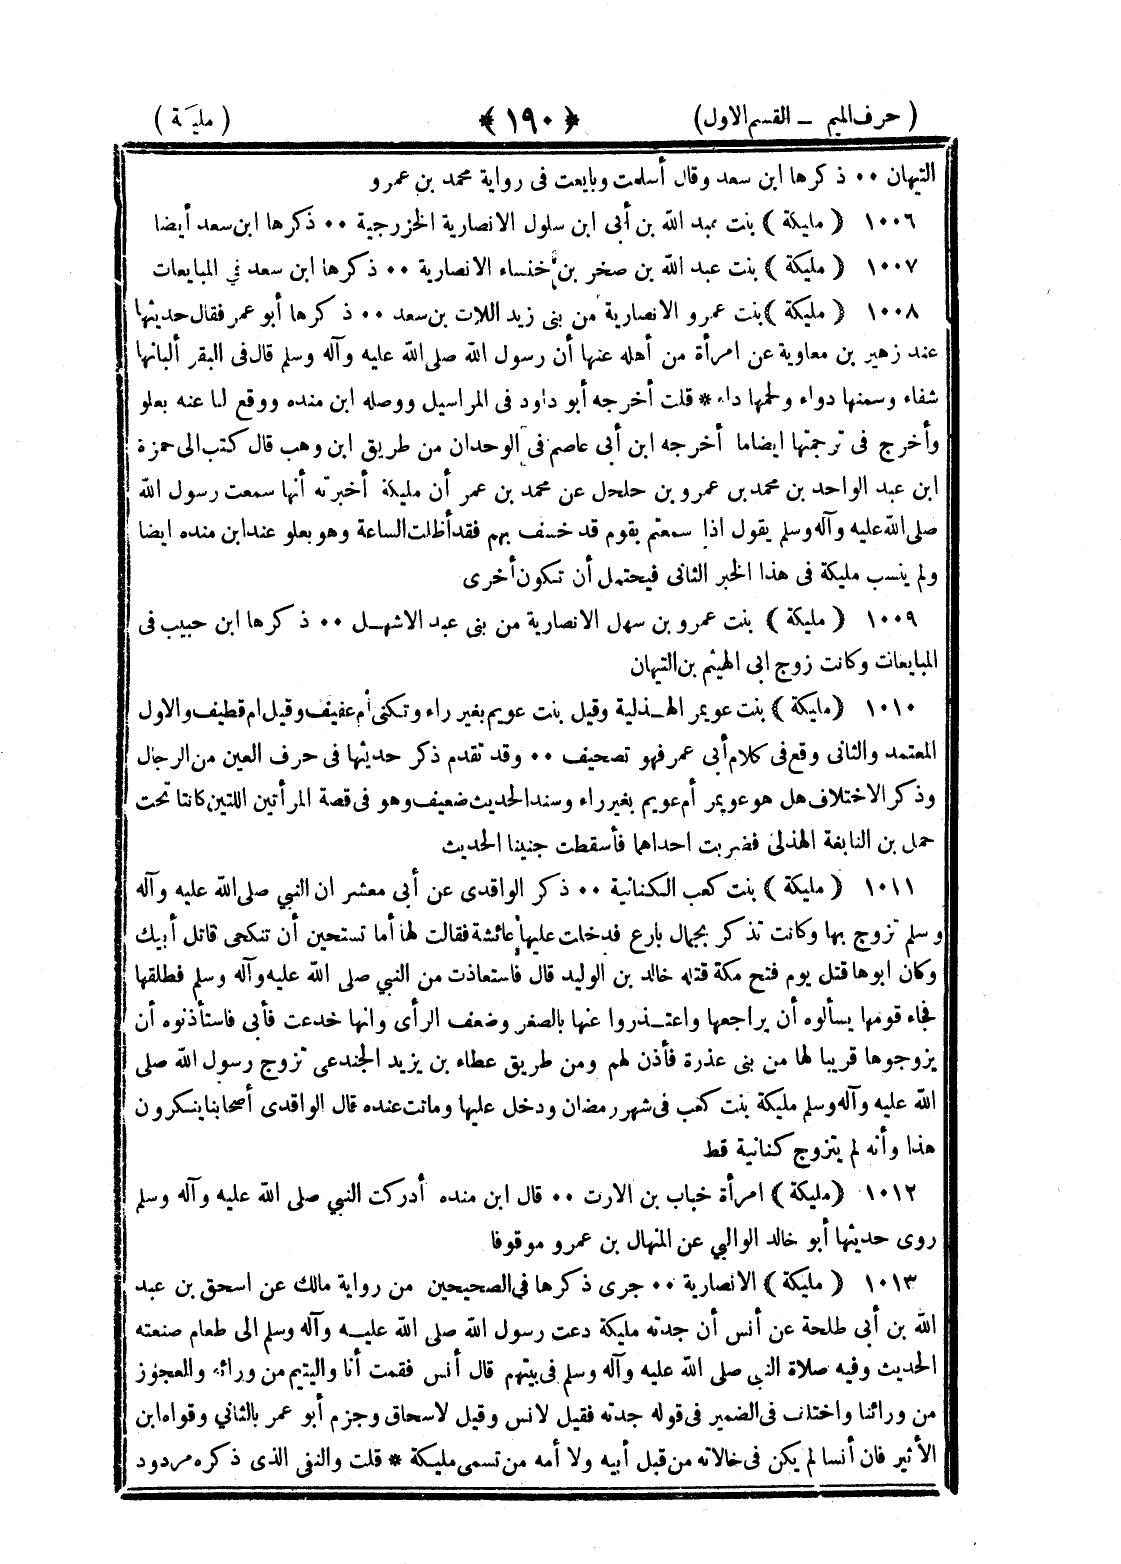 ( حرف الميم ــ القسم الاول ) ﴿ ١٩٠ ﴾ ( مليكة )
التيهان ٠٠ ذكرها ابن سعد وقال أسلمت وبايعت فى رواية محمد بن عمرو
١٠٠٦ ( مليكة ) بنت عبد الله بن أبى ابن سلول الانصارية الخزرجية ٠٠ ذكرها ابن سعد أيضا
١٠٠٧ ( مليكة ) بنت عبد الله بن صخر بن خنساء الانصارية ٠٠ ذكرها ابن سعد في المبايعات
١٠٠٨ ( مليكة ) بنت عمرو الانصارية من بنى زيد اللات بن سعد ٠٠ ذكرها أبو عمر فقال حديثها
عند زهير بن معاوية عن امرأة من أهله عنها أن رسول الله صلى الله عليه وآله وسلم قال فى البقر ألبانها
شفاء وسمنها دواء ولحمها داء * قلت أخرجه أبو داود فى المراسيل ووصله ابن منده ووقع لنا عنه بعلو
وأخرج فى ترجمتها ايضا ما أخرجه ابن أبى عاصم فى الوحدان من طريق ابن وهب قال كتب الى حمزة
ابن عبد الواحد بن محمد بن عمرو بن حلحل عن محمد بن عمر أن مليكة أخبرته أنها سمعت رسول الله
صلى الله عليه وآله وسلم يقول اذا سمعتم بقوم قد خسف بهم فقد أظلت الساعة وهو بعلو عند ابن منده ايضا
ولم ينسب مليكة فى هذا الخبر الثانى فيحتمل أن تكون أخرى
١٠٠٩ ( مليكة ) بنت عمرو بن سهل الانصارية من بنى عبد الاشهل ٠٠ ذكرها ابن حبيب فى
المبايعات وكانت زوج ابى الهيثم بن التيهان
١٠١٠ ( مليكة ) بنت عويمر الهذلية وقيل بنت عويم بغير راء وتكنى أم عفيف وقيل ام قطيف والاول
المعتمد والثانى وقع فى كلام أبى عمر فهو تصحيف ٠٠ وقد تقدم ذكر حديثها فى حرف العين من الرجال
وذكر الاختلاف هل هو عويمر أم عويم بغير راء وسند الحديث ضعيف وهو فى قصة المرأتين اللتين كانتا تحت
حمل بن النابغة الهذلى فضربت احداهما فأسقطت جنينا الحديث
١٠١١ ( مليكة ) بنت كعب الكنانية ٠٠ ذكر الواقدى عن أبى معشر ان النبي صلى الله عليه وآله
وسلم تزوج بها وكانت تذكر بجمال بارع فدخلت عليها عائشة فقالت لها أما تستحين أن تنكحى قاتل أبيك
وكان ابوها قتل يوم فتح مكة قتله خالد بن الوليد قال فاستعاذت من النبي صلى الله عليه وآله وسلم فطلقها
فجاء قومها يسألوه أن يراجعها واعتذروا عنها بالصغر وضعف الرأى وانها خدعت فأبى فاستأذنوه أن
يزوجوها قريبا لها من بنى عذرة فأذن لهم ومن طريق عطاء بن يزيد الجندعى تزوج رسول الله صلى
الله عليه وآله وسلم مليكة بنت كعب فى شهر رمضان ودخل عليها وماتت عنده قال الواقدى أصحابنا ينكرون
هذا وأنه لم يتزوج كنانية قط
١٠١٢ ( مليكة ) امرأة خباب بن الارت ٠٠ قال ابن منده أدركت النبي صلى الله عليه وآله وسلم
روى حديثها أبو خالد الوالبي عن المنهال بن عمرو موقوفا
١٠١٣ ( مليكة ) الانصارية ٠٠ جرى ذكرها في الصحيحين من رواية مالك عن اسحق بن عبد
الله بن أبى طلحة عن أنس أن جدته مليكة دعت رسول الله صلى الله عليه وآله وسلم الى طعام صنعته
الحديث وفيه صلاة النبي صلى الله عليه وآله وسلم فى بيتهم قال أنس فقمت أنا واليتيم من ورائه والعجوز
من ورائنا واختلف فى الضمير فى قوله جدته فقيل لانس وقيل لاسحاق وجزم أبو عمر بالثاني وقواه ابن
الأثير فان أنسا لم يكن فى خالاته من قبل أبيه ولا أمه من تسمى مليكة * قلت والنفى الذى ذكره مردود